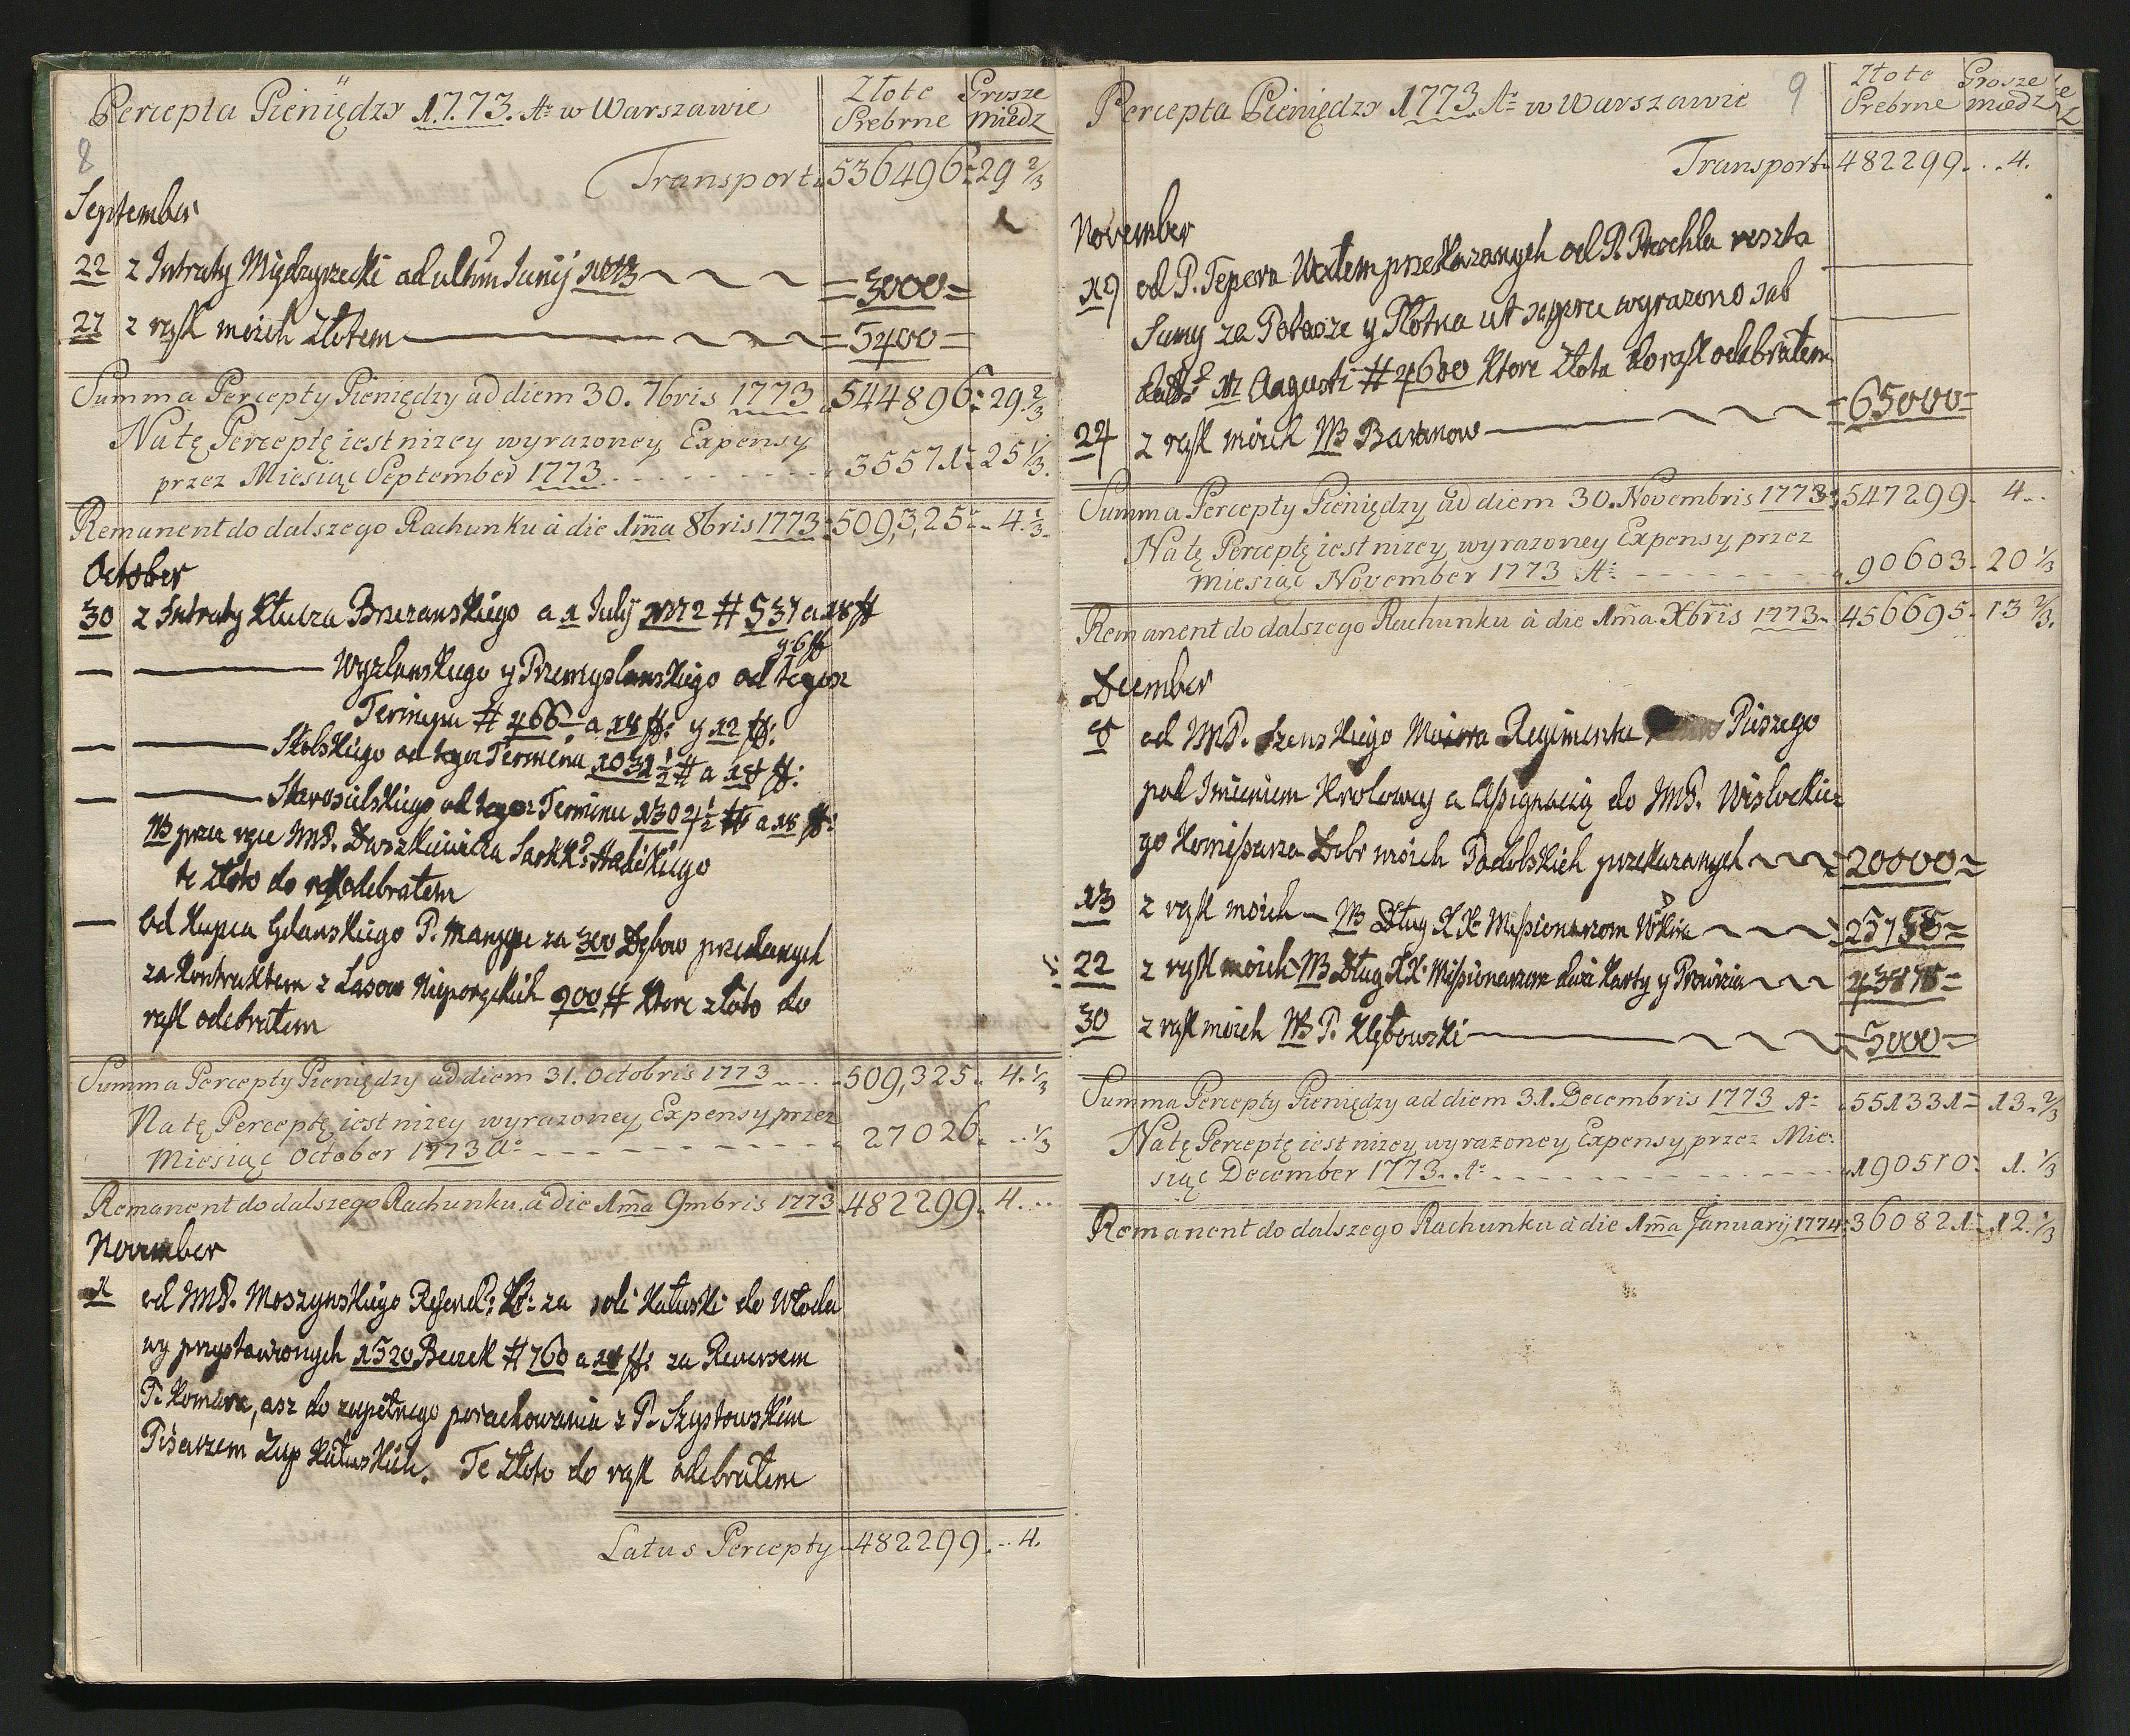 Percepta Pieniędzy 1773. Aº w Warszawie
Złote Srebrne
Grosze miedz
8
Transport 536496 = 29 2/3
September
22 z Intraty Międzyrzecki ad ultim Junij 1773 = 3000 =
27 z ręk moich złotem = 5400 =
Summa Percepty Pieniędzy ad diem 30. 7bris 1773 544896 = 29 2/3
Na tę Perceptę iest nizey wyrazoney Expensy
przez Miesiąc September 1773. 35571 = 25 1/3.
Remanent do dalszego Rachunku à die 1ma 8bris 1773 = 509,325 = 4. 1/3.
October
30 z Intraty Klucza Brzezanskiego a 1 Julij 1772 # 537 a 18 ff
y 6 ff
Wyzlanskiego y Przemyslanskiego od tegosz
Terminu # 466 a 18 ff: y 12 ff:
Stolskiego od tegoz Terminu 1031 1/2 # a 18 ff:
Starosielskiego od tegoz Terminu 1304 1/2 # a 18 ff:
NB przez ręce JMP. Duszkiewicza Halickiego
te złoto do ręk odebrałem
Od Kupca Gdanskiego P. za 300 Dębow przedanych
za Kontraktem z Lasow Nieporęckich 900 # Ktore złoto do
ręk odebrałem
Summa Percepty Pieniędzy ad diem 31. Octobris 1773 509,325. 4. 1/3
Na tę Perceptę iest nizey wyrazoney Expensy przez
Miesiąc October 1773 Aº 27026. 1/3
Remanent do dalszego Rachunku à die 1ma 9mbris 1773 482299. 4...
November
1 od JMP. Moszynskiego Referend: Kº: za soli Kałuski do Włoda
wy przystawionych 1520 Beczek # 760 a 18 ff: za Reversem
P. Komara, asz do zupełnego porachowania z P. Szystowskim
Pisarzem Zup Kałuskich. Te złoto do ręk odebrałem
Latus Percepty 482299... 4.
Percepta Pieniędzy 1773 Aº w Warszawie
9
Złote Srebrne
Grosze miedz
Transport 482299... 4.
November
19 od P. Tepera przekazanych od P. reszta
Sumy za Potasze y Płotna ut supra wyrazono sub
12 Augusti # 4600 Ktore złota do ręk odebrałem
24 z ręk moich NB Baranow = 65000 =
Summa Percepty Pieniędzy ad diem 30. Novembris 1773 547299. 4..
Na tę Perceptę iest nizey wyrazoney Expensy przez
miesiąc November 1773 Aº 90603. 20 1/3
Remanent do dalszego Rachunku à die 1ma Xbris 1773. 456695. 13 2/3.
December
8 od JMP. Maiora Regimentu Pieszego
pod Imieniem Krolowey a Assignacią do JMP. Wisłockie
go Komissarza Dobr moich Podolskich przekazanych = 20000 =
13 z ręk moich NB Dług XX Missionarom
22 z ręk moich NB Dług XX. Missionarom dwa Karty y Prowizia
30 z ręk moich NB P. Klętowski = 5000 =
Summa Percepty Pieniędzy ad diem 31. Decembris 1773 Aº 551331 = 13. 2/3
Na tę Perceptę iest nizey wyrazoney Expensy przez Mie:
siąc December 1773. Aº 190510. 1. 1/3
Remanent do dalszego Rachunku à die 1ma Januarij 1774 = 360821 = 12. 1/3